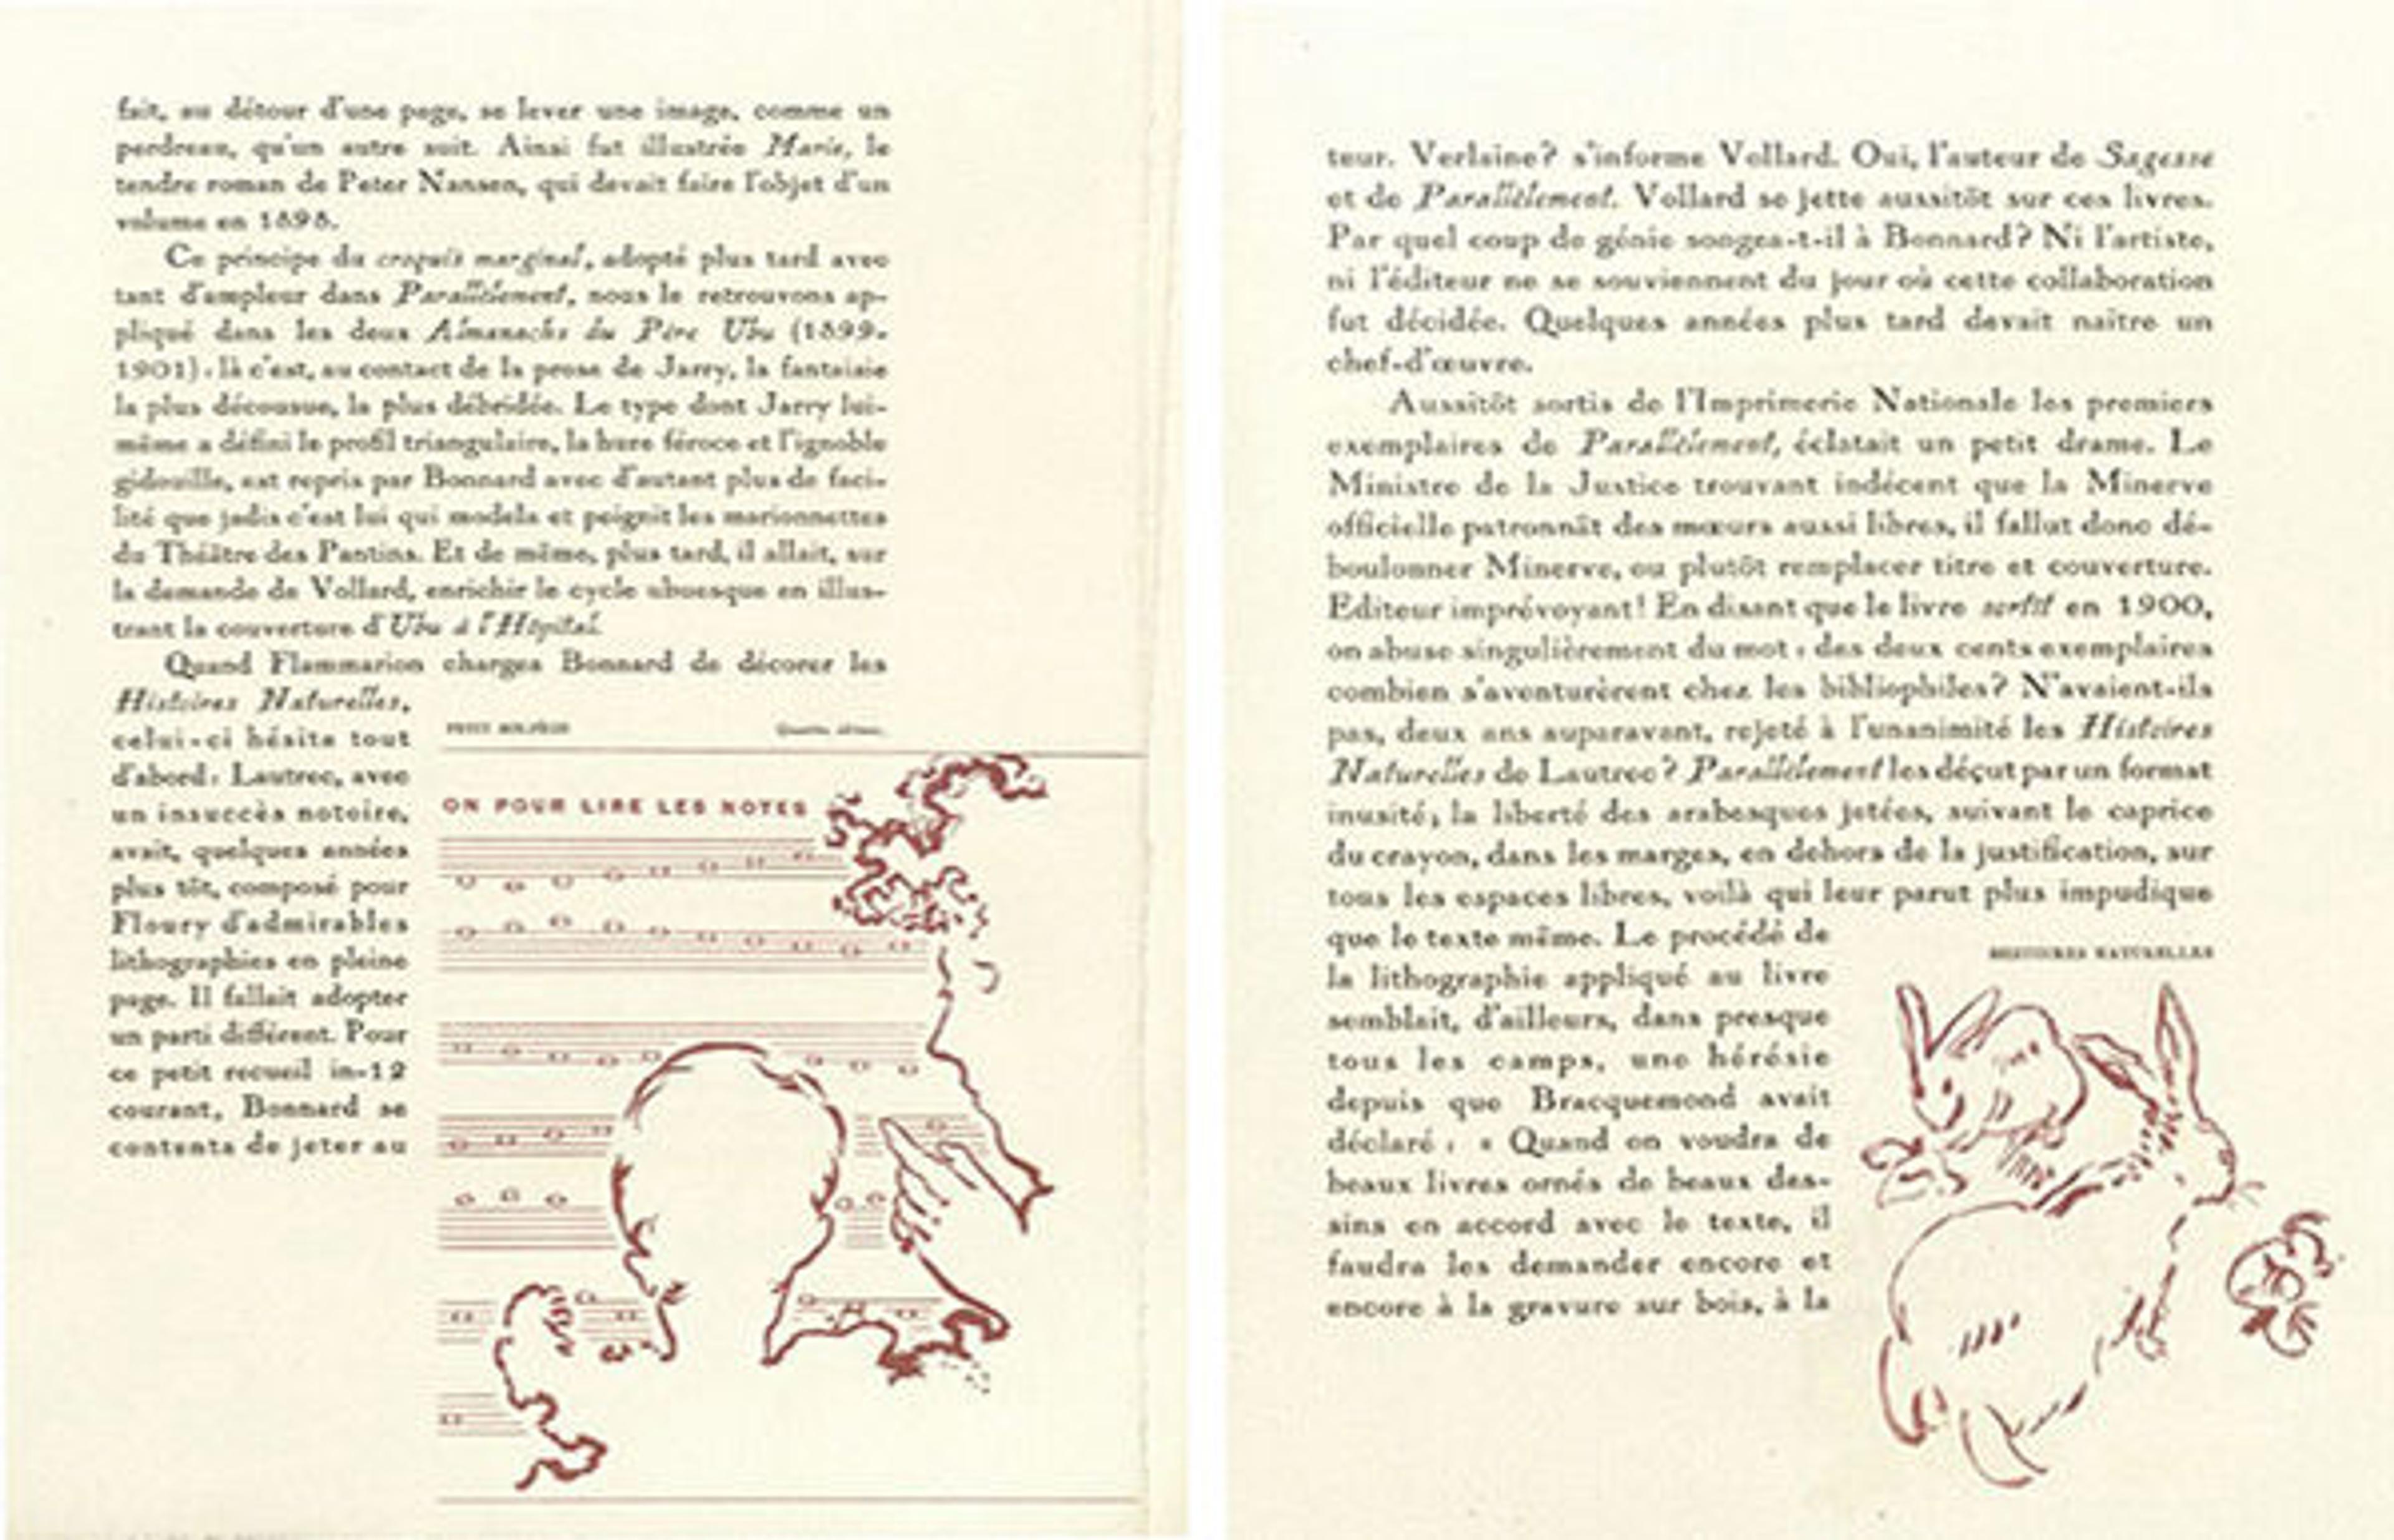 fait, au détour d'une page, se lever une image, comme un
perdreau, qu'un autre suit. Ainsi fut illustrée Marie, le
tendre roman de Peter Nansen, qui devait faire l'objet d'un
volume en 1898.
Ce principe du croquis marginal, adopté plus tard avec
tant d'ampleur dans Parallèlement, nous le retrouvons ap-
pliqué dans les deux Almanachs du Père Ubu (1899-
1901) : là c'est, au contact de la prose de Jarry, la fantaisie
la plus décousue, la plus débridée. Le type dont Jarry lui-
même a défini le profil triangulaire, la hure féroce et l'ignoble
gidouille, est repris par Bonnard avec d'autant plus de faci-
lité que jadis c'est lui qui modela et peignit les marionnettes
du Théâtre des Pantins. Et de même, plus tard, il allait, sur
la demande de Vollard, enrichir le cycle ubuesque en illus-
trant la couverture d'Ubu à l'Hôpital.
Quand Flammarion charges Bonnard de décorer les
Histoires Naturelles,
celui-ci hésita tout
d'abord : Lautrec, avec
un insuccès notoire,
avait, quelques années
plus tôt, composé pour
Floury d'admirables
lithographies en pleine
page. Il fallait adopter
un parti différent. Pour
ce petit recueil in-12
courant, Bonnard se
contenta de jeter au
PETIT SOLFÈGE
ON POUR LIRE LES NOTES
teur. Verlaine? s'informe Vollard. Oui, l'auteur de Sagesse
et de Parallèlement. Vollard se jette aussitôt sur ces livres.
Par quel coup de génie songea-t-il à Bonnard? Ni l'artiste,
ni l'éditeur ne se souviennent du jour où cette collaboration
fut décidée. Quelques années plus tard devait naître un
chef-d'œuvre.
Aussitôt sortis de l'Imprimerie Nationale les premiers
exemplaires de Parallèlement, éclatait un petit drame. Le
Ministre de la Justice trouvant indécent que la Minerve
officielle patronnât des mœurs aussi libres, il fallut donc dé-
boulonner Minerve, ou plutôt remplacer titre et couverture.
Editeur imprévoyant! En disant que le livre sortit en 1900,
on abuse singulièrement du mot : des deux cents exemplaires
combien s'aventurèrent chez les bibliophiles? N'avaient-ils
pas, deux ans auparavant, rejeté à l'unanimité les Histoires
Naturelles de Lautrec? Parallèlement les déçut par un format
inusité; la liberté des arabesques jetées, suivant le caprice
du crayon, dans les marges, en dehors de la justification, sur
tous les espaces libres, voilà qui leur parut plus impudique
que le texte même. Le procédé de
la lithographie appliqué au livre
semblait, d'ailleurs, dans presque
tous les camps, une hérésie
depuis que Bracquemond avait
déclaré : « Quand on voudra de
beaux livres ornés de beaux des-
sins en accord avec le texte, il
faudra les demander encore et
encore à la gravure sur bois, à la
HISTOIRES NATURELLES